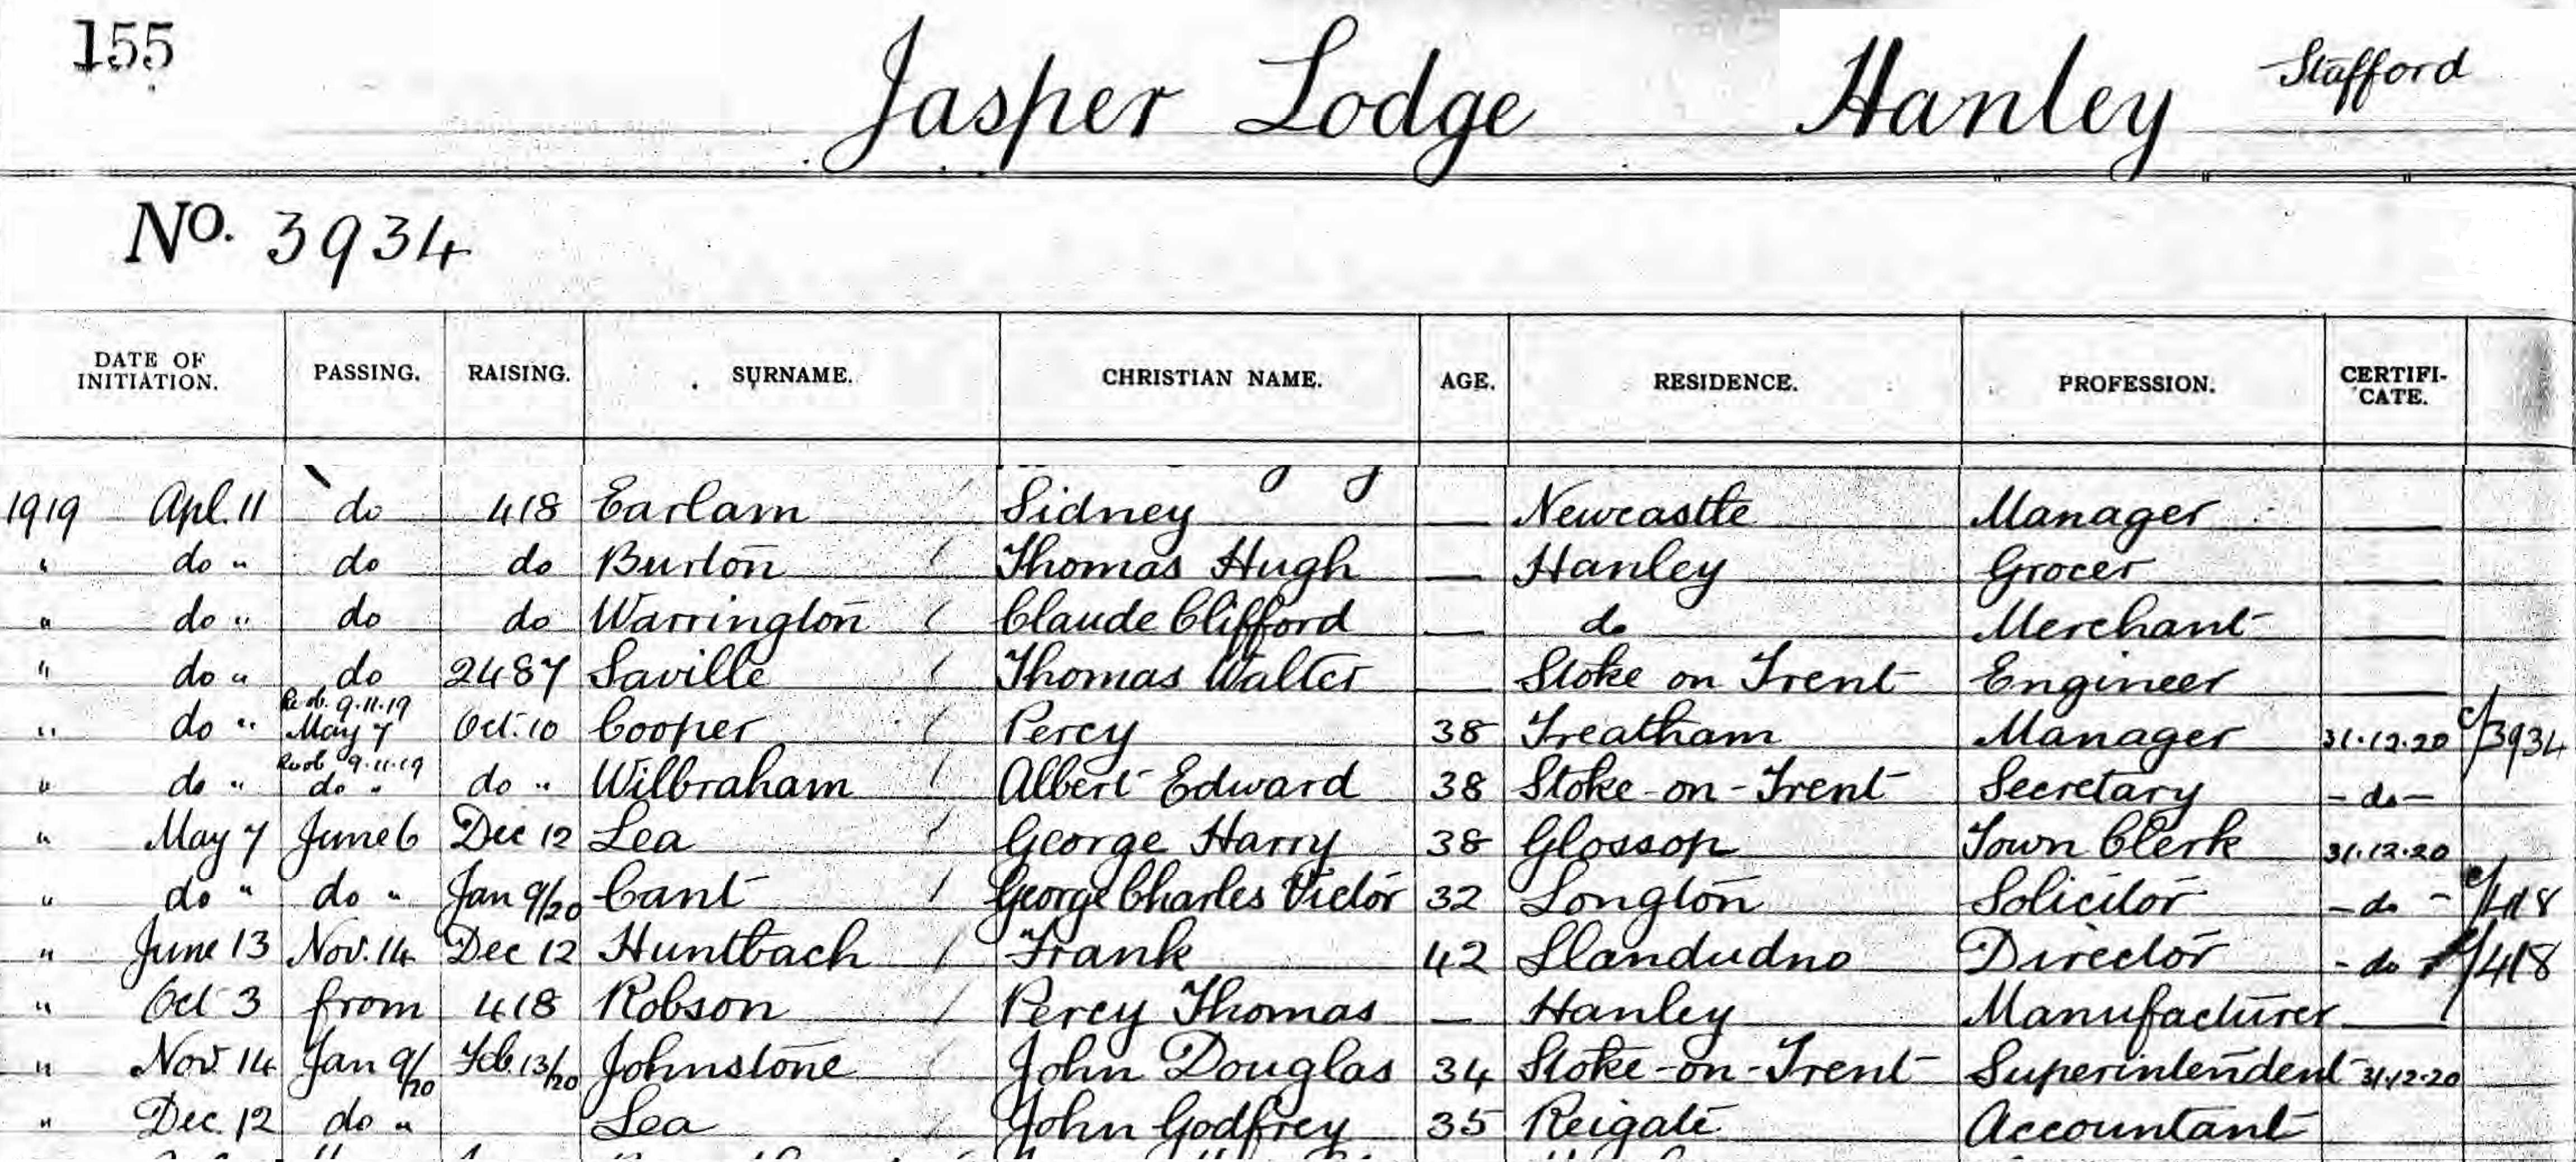 155 Jasper Lodge Hanley Stafford
No. 3934
DATE OF INITIATION. PASSING. RAISING. SURNAME. CHRISTIAN NAME. AGE. RESIDENCE. PROFESSION. CERTIFI-CATE.
1919 Apl. 11 do 418 Earlam Sidney — Newcastle Manager —
" do " do do Burton Thomas Hugh — Hanley Grocer —
" do " do do Warrington Claude Clifford — do Merchant —
" do " do 2487 Saville Thomas Walter — Stoke on Trent Engineer —
9.11.19
" do " May 7 Oct. 10 Cooper Percy 38 Treatham Manager 31.12.20 c/3934
9.11.19
" do " do " do " Wilbraham Albert Edward 38 Stoke-on-Trent Secretary - do -
" May 7 June 6 Dec 12 Lea George Harry 38 Glossop Town Clerk 31.12.20
" do " do " Jan 9/20 Cant George Charles Victor 32 Longton Solicitor - do - c/418
" June 13 Nov. 14 Dec 12 Huntbach Frank 42 Llandudno Director - do - c/418
" Oct 3 from 418 Robson Percy Thomas — Hanley Manufacturer —
" Nov. 14 Jan 9/20 Feb. 13/20 Johnstone John Douglas 34 Stoke-on-Trent Superintendent 31.12.20
" Dec. 12 do " Lea John Godfrey 35 Reigate Accountant